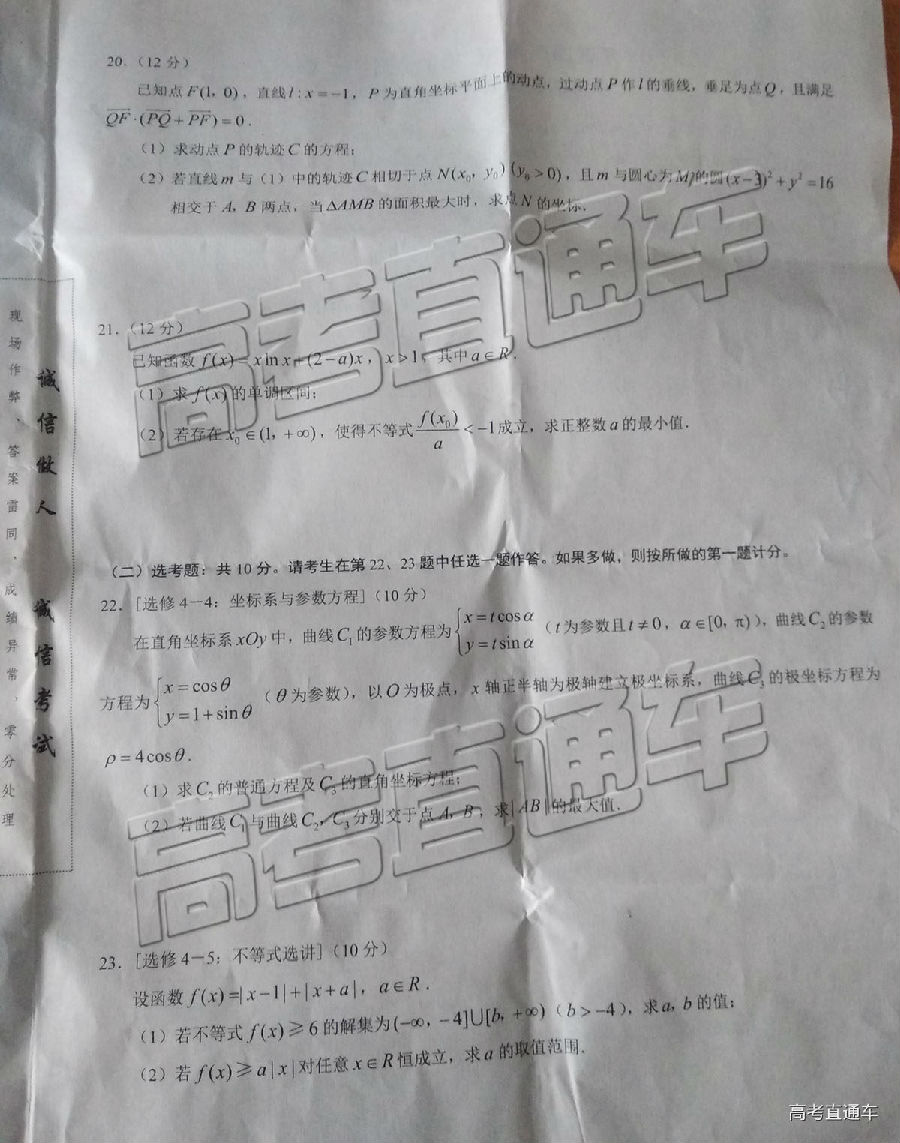 20.（12分）
已知点F(1，0)，直线l：x=−1，P为直角坐标平面上的动点，过动点P作l的垂线，垂足为点Q，且满足
QF·(PQ+PF)=0．
（1）求动点P的轨迹C的方程；
（2）若直线m与（1）中的轨迹C相切于点N(x₀，y₀)(y₀>0)，且m与圆心为M的圆(x−3)²+y²=16
相交于A，B两点，当ΔAMB的面积最大时，求点N的坐标．
21.（12分）
已知函数f(x)=xlnx+(2−a)x，x>1，其中a∈R．
（1）求f(x)的单调区间；
（2）若存在x₀∈(1，+∞)，使得不等式f(x₀)/a<−1成立，求正整数a的最小值．
（二）选考题：共10分。请考生在第22、23题中任选一题作答。如果多做，则按所做的第一题计分。
22.［选修4—4：坐标系与参数方程］(10分)
在直角坐标系xOy中，曲线C₁的参数方程为{x=tcosα y=tsinα（t为参数且t≠0，α∈[0，π)），曲线C₂的参数
方程为{x=cosθ y=1+sinθ（θ为参数），以O为极点，x轴正半轴为极轴建立极坐标系，曲线C₃的极坐标方程为
ρ=4cosθ．
（1）求C₂的普通方程及C₃的直角坐标方程；
（2）若曲线C₁与曲线C₂，C₃分别交于点A，B，求|AB|的最大值．
23.［选修4—5：不等式选讲］(10分)
设函数f(x)=|x−1|+|x+a|，a∈R．
（1）若不等式f(x)≥6的解集为(−∞，−4]∪[b，+∞)（b>−4），求a，b的值；
（2）若f(x)≥a|x|对任意x∈R恒成立，求a的取值范围．
现场作弊、答案雷同，成绩异常，零分处理
诚信做人 诚信考试
高考直通车
高考直通车
高考直通车